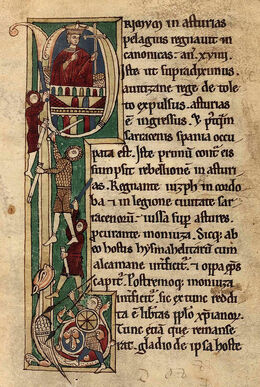 PRIMVM IN ASTURIAS
pelagius regnauit in
canonicas. an. xviiij.
Iste ut supradiximus.
a uitizane rege de tole
to expulsus. asturias
est ingressus. et p̄qm̄
sarraceni spania occu
pata est. Iste primū cont̃ eis
sumpsit rebellionē in asturi
as. Regnante iuzph in cordo
ba et in legione ciuitate sar
racenorū. iussa sup̱ astures.
p̱curante moniuza. Sicq; ab
eo hostis hysmahelitarū cum
alcamane int̃ficit̃. et oppa ep̄s
capit̃. Postremoq; moniuza
int̃ficit̃. sic ex tunc reddi
ta ē libertas pp̱lo xp̄iano.
Tunc etiā que remanse
rat. gladio de ipsa hoste